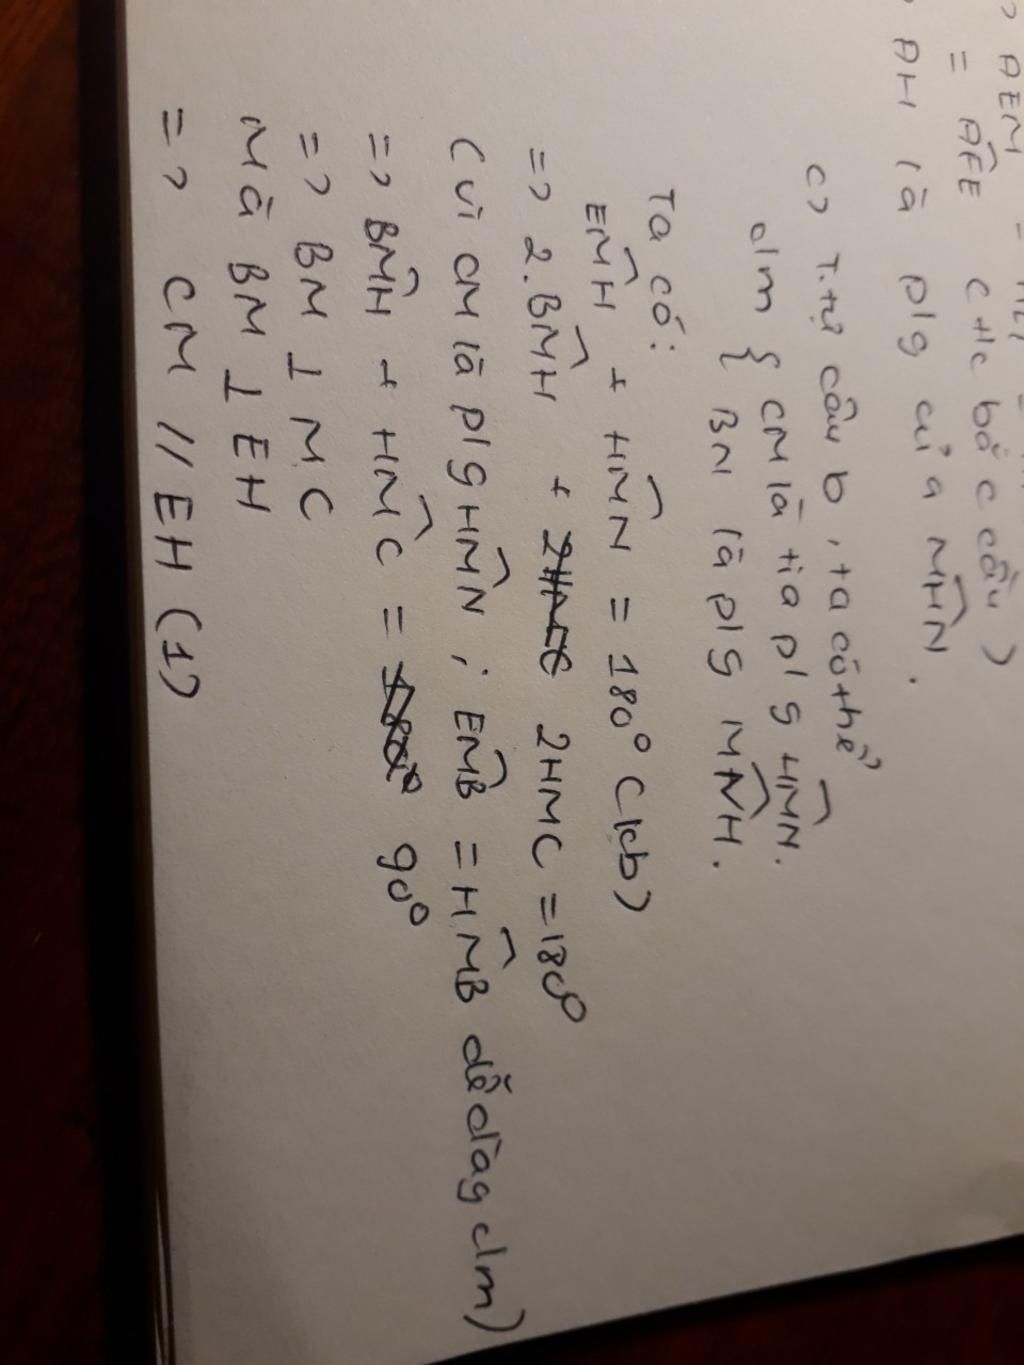 => AEM =
= AFE (t/c bắc cầu)
=> AH là p/g của MHN.
c) T.tự câu b, ta có thể
c/m { CM là tia p/g HMN.
{ BN là p/g MNH.
Ta có:
EMH + HMN = 180° (kb)
=> 2.BMH + 2HMC = 180°
(vì CM là p/g HMN; EMB = HMB dễ dàg c/m)
=> BMH + HMC = 90°
=> BM ⊥ MC
Mà BM ⊥ EH
=> CM // EH (1)